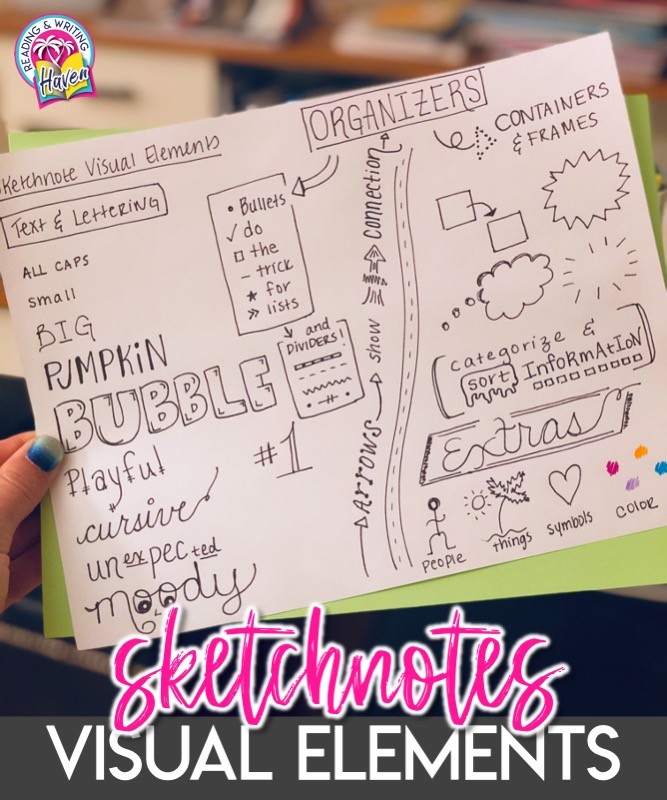 READING & WRITING
Haven
Sketchnote Visual Elements
Text & Lettering
ALL CAPS
small
BIG
PUMPKIN
BUBBLE
Playful
cursive
unexpected
moody
ORGANIZERS
• Bullets
✓ do
□ the
- trick
★ for
» lists
and
DIVIDERS!
#1
ARROWS show connection
CONTAINERS
& FRAMES
categorize &
sort InformAtIon
Extras
People
things
symbols
COLOR
sketchnotes
VISUAL ELEMENTS